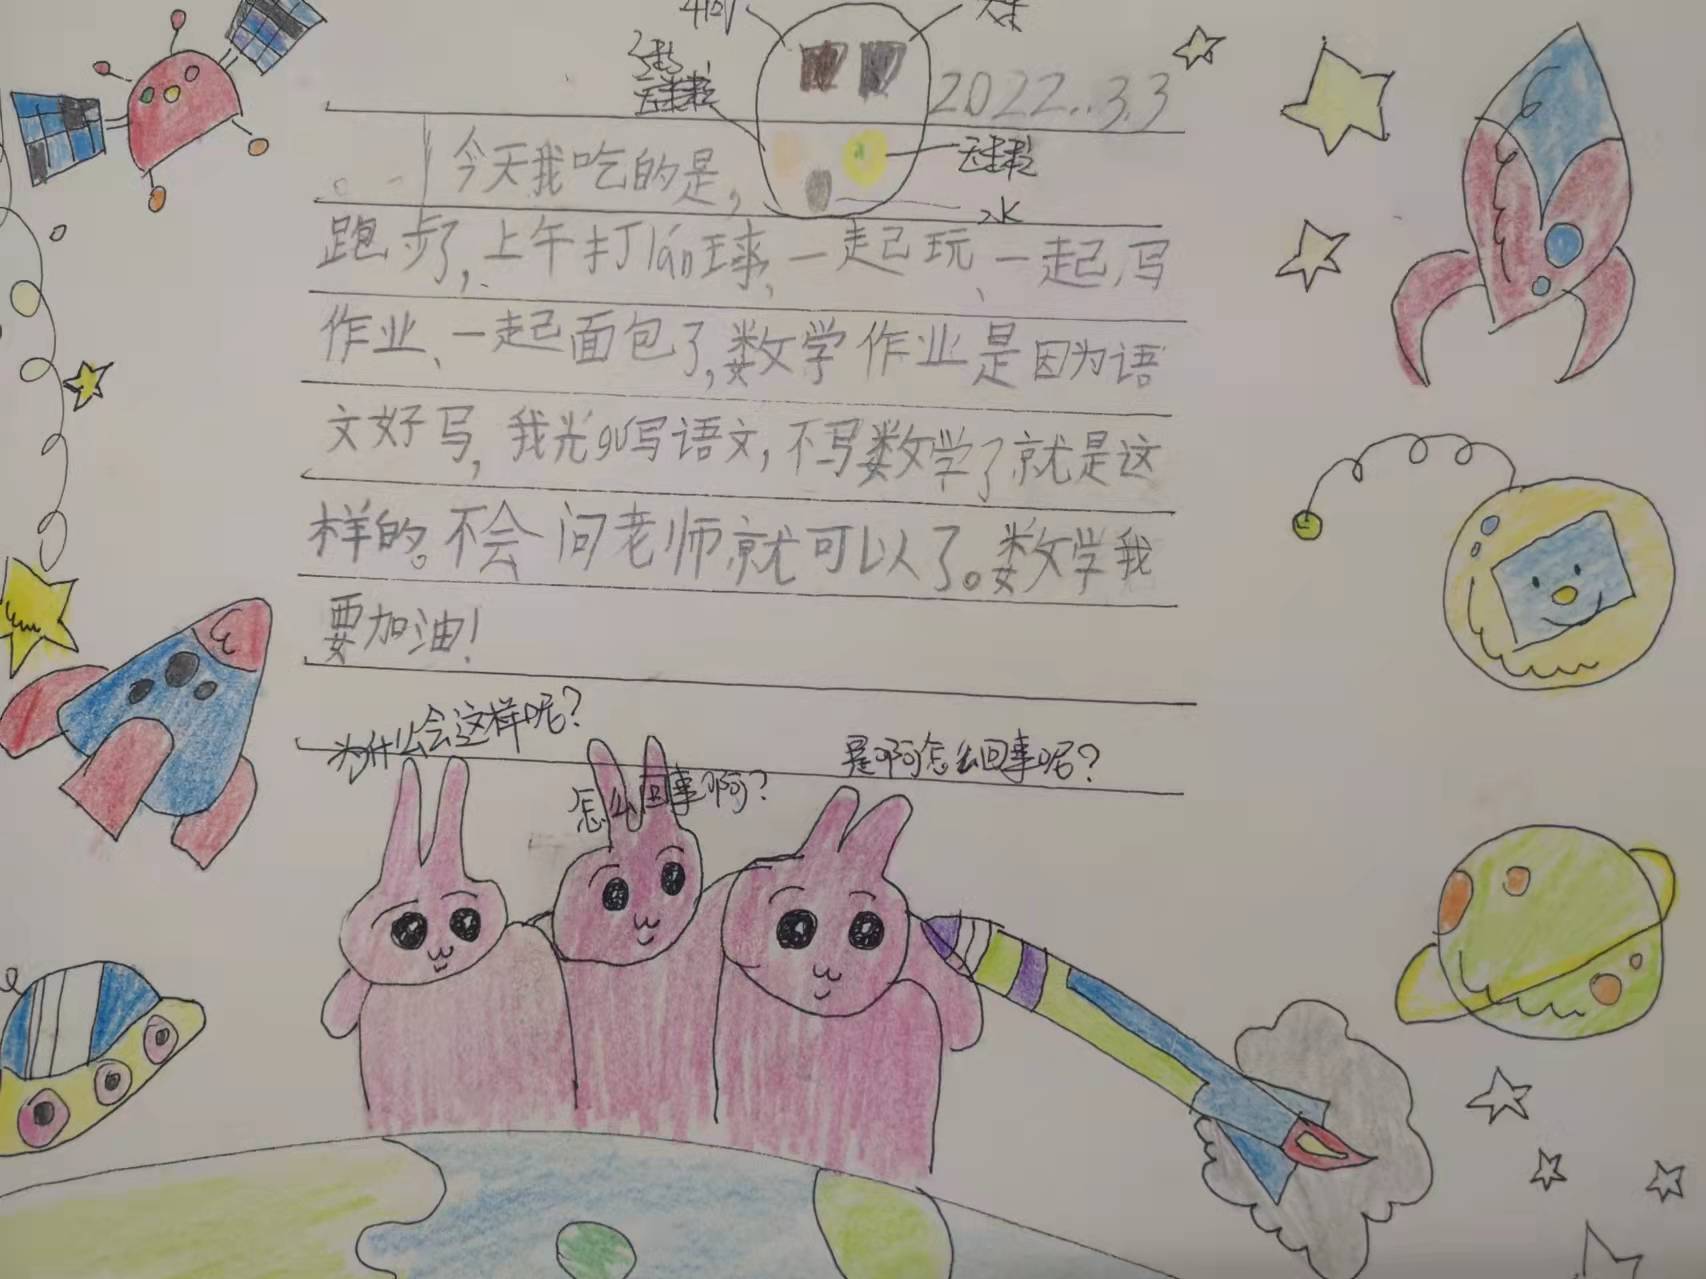 2022..3.3
今天我吃的是，
水
跑步了，上午打lán球，一起玩、一起写
作业、一起面包了，数学作业是因为语
文好写，我光gù写语文，不写数学了就是这
样的。不会问老师就可以了。数学我
要加油！
为什么会这样呢？
怎么回事啊？
是啊怎么回事呢？